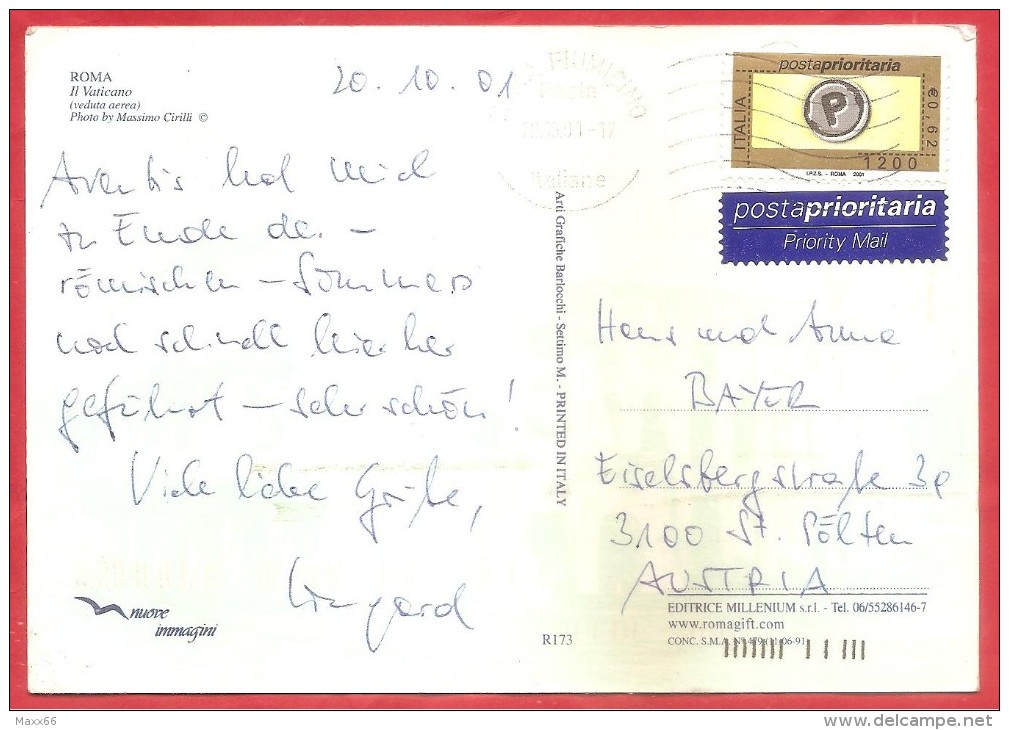 ROMA
Il Vaticano
(veduta aerea)
Photo by Massimo Cirilli ©
20. 10. 01
FIUMICINO
Poste
Italiane
postaprioritaria
ITALIA
P
€0,62
1200
I.P.Z.S. - ROMA 2001
postaprioritaria
Priority Mail
Aventis hat mich
zu Ende des -
römischen - Sommers
noch schnell hierher
geführt - sehr schön!
Viele liebe Grüße,
Arti Grafiche Barlocchi - Settimo M. - PRINTED IN ITALY
Hans und Anna
BAYER
Eiselsbergstraße 3p
3100 St. Pölten
AUSTRIA
EDITRICE MILLENIUM s.r.l. - Tel. 06/55286146-7
www.romagift.com
CONC. S.M.A. N° 479 (11-06-91)
nuove
immagini
R173
Maxx66
www.delcampe.net